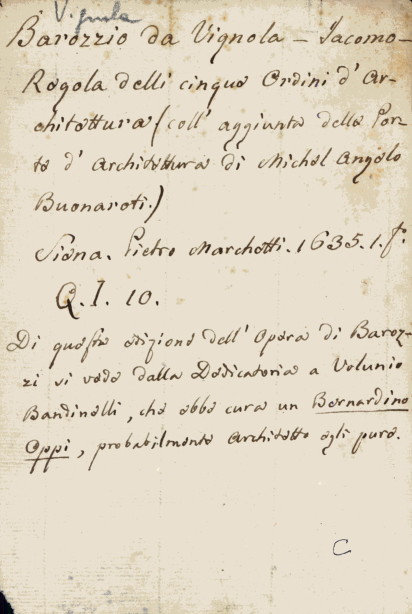 Vignola
Barozzio da Vignola - Iacomo -
Regola delli cinque Ordini d' Ar-
chitettura (coll' aggiunta delle Por-
te d' Architettura di Michel Angelo
Buonaroti.)
Siena. Pietro Marchetti. 1635. 1. fo.
Q. I. 10.
Di questa edizione dell' Opera di Baroz-
zi si vede dalla Dedicatoria a Volunio
Bandinelli, che ebbe cura un Bernardino
Oppi, probabilmente Architetto egli pure.
C